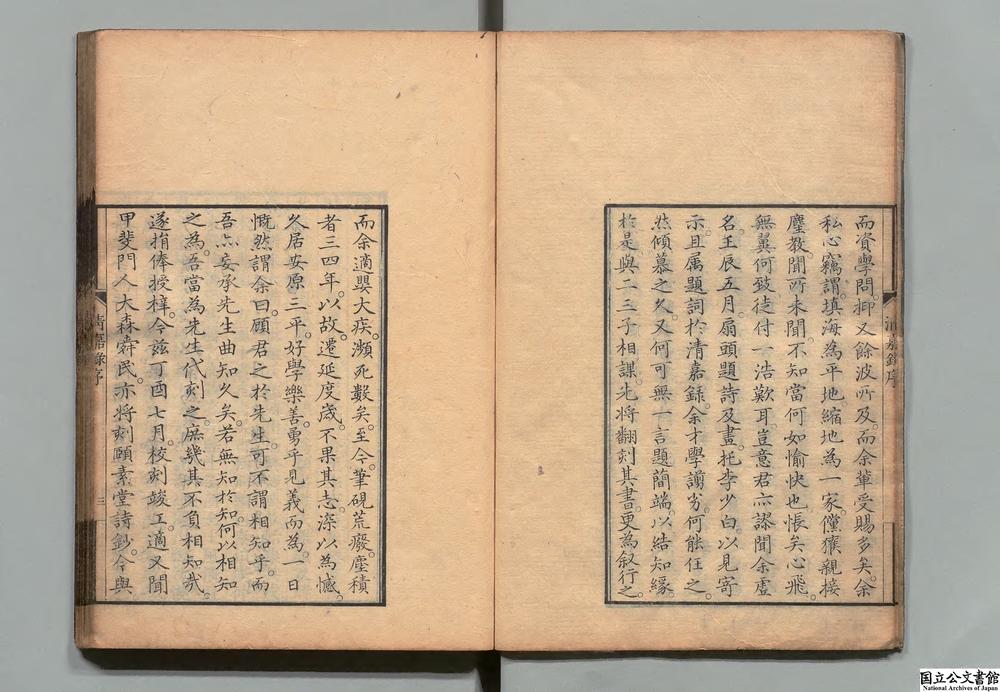 而資學問。抑又餘波所及。而余輩受賜多矣。余
私心竊謂填海為平地縮地為一家。儻獲親接
麈教聞所未聞。不知當何如愉快也。悵矣心飛。
無翼何致。徒付一浩歎耳。豈意君亦謬聞余虛
名。壬辰五月。扇頭題詩及畫。托李少白。以見寄
示。且属題詞於清嘉録。余才學譾劣。何能任之。
然傾慕之久。又何可無一言題簡端。以結知緣。
於是與二三子相謀。先將翻刻其書。更為叙行之。
清嘉録序
而余適嬰大疾。瀕死數矣。至今筆硯荒癈。塵積
者三四年。以故遷延度歳。不果其志。深以為憾。
久居安原三平。好學樂善。勇乎見義而為。一日
慨然謂余曰。顧君之於先生。可不謂相知乎。而
吾亦妄承先生曲知久矣。若無知於知。何以相知
之為。吾當為先生代刻之。庶幾其不負相知哉。
遂捐俸授梓。今兹丁酉七月。校刻竣工。適又聞
甲斐門人大森舜民。亦将刻頤素堂詩鈔。今與
清嘉録序
三
国立公文書館
National Archives of Japan